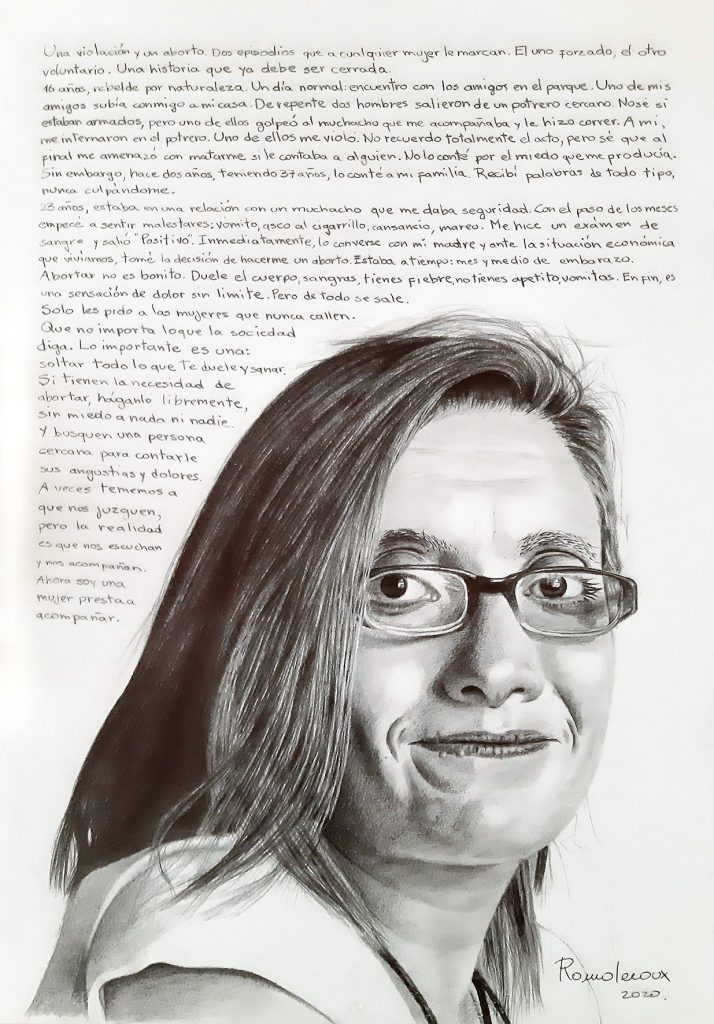 Una violación y un aborto. Dos episodios que a cualquier mujer le marcan. El uno forzado, el otro
voluntario. Una historia que ya debe ser cerrada.
16 años, rebelde por naturaleza. Un día normal: encuentro con los amigos en el parque. Uno de mis
amigos subía conmigo a mi casa. De repente dos hombres salieron de un potrero cercano. No sé si
estaban armados, pero uno de ellos golpeó al muchacho que me acompañaba y le hizo correr. A mi,
me internaron en el potrero. Uno de ellos me violó. No recuerdo totalmente el acto, pero sé que al
final me amenazó con matarme si le contaba a alguien. No lo conté por el miedo que me producía.
Sin embargo, hace dos años, teniendo 37 años, lo conté a mi familia. Recibí palabras de todo tipo,
nunca culpándome.
23 años, estaba en una relación con un muchacho que me daba seguridad. Con el paso de los meses
empecé a sentir malestares; vómito, asco al cigarrillo, cansancio, mareo. Me hice un exámen de
sangre y salió "Positivo". Inmediatamente, lo converse con mi madre y ante la situación económica
que vivíamos, tomé la decisión de hacerme un aborto. Estaba a tiempo: mes y medio de embarazo.
Abortar no es bonito. Duele el cuerpo, sangras, tienes fiebre, no tienes apetito, vomitas. En fin, es
una sensación de dolor sin limite. Pero de todo se sale.
Solo les pido a las mujeres que nunca callen.
Que no importa lo que la sociedad
diga. Lo importante es una:
soltar todo lo que te duele y sanar.
Si tienen la necesidad de
abortar, háganlo libremente,
sin miedo a nada ni nadie.
Y busquen una persona
cercana para contarle
sus angustias y dolores.
A veces tememos a
que nos juzguen,
pero la realidad
es que nos escuchan
y nos acompañan.
Ahora soy una
mujer presta a
acompañar.
Romoleroux
2020.